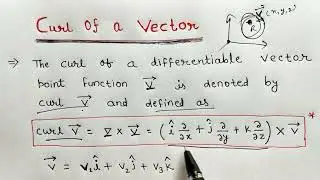 Curl Of a Vector
V (x,y,z)
⇒ The curl of a differentiable vector
point function V⃗ is denoted by
curl V⃗ and defined as
curl V⃗ = ∇ × V⃗ = (î ∂/∂x + ĵ ∂/∂y + k ∂/∂z) × V⃗ *
V⃗ = v₁î + v₂ĵ + v₃k̂